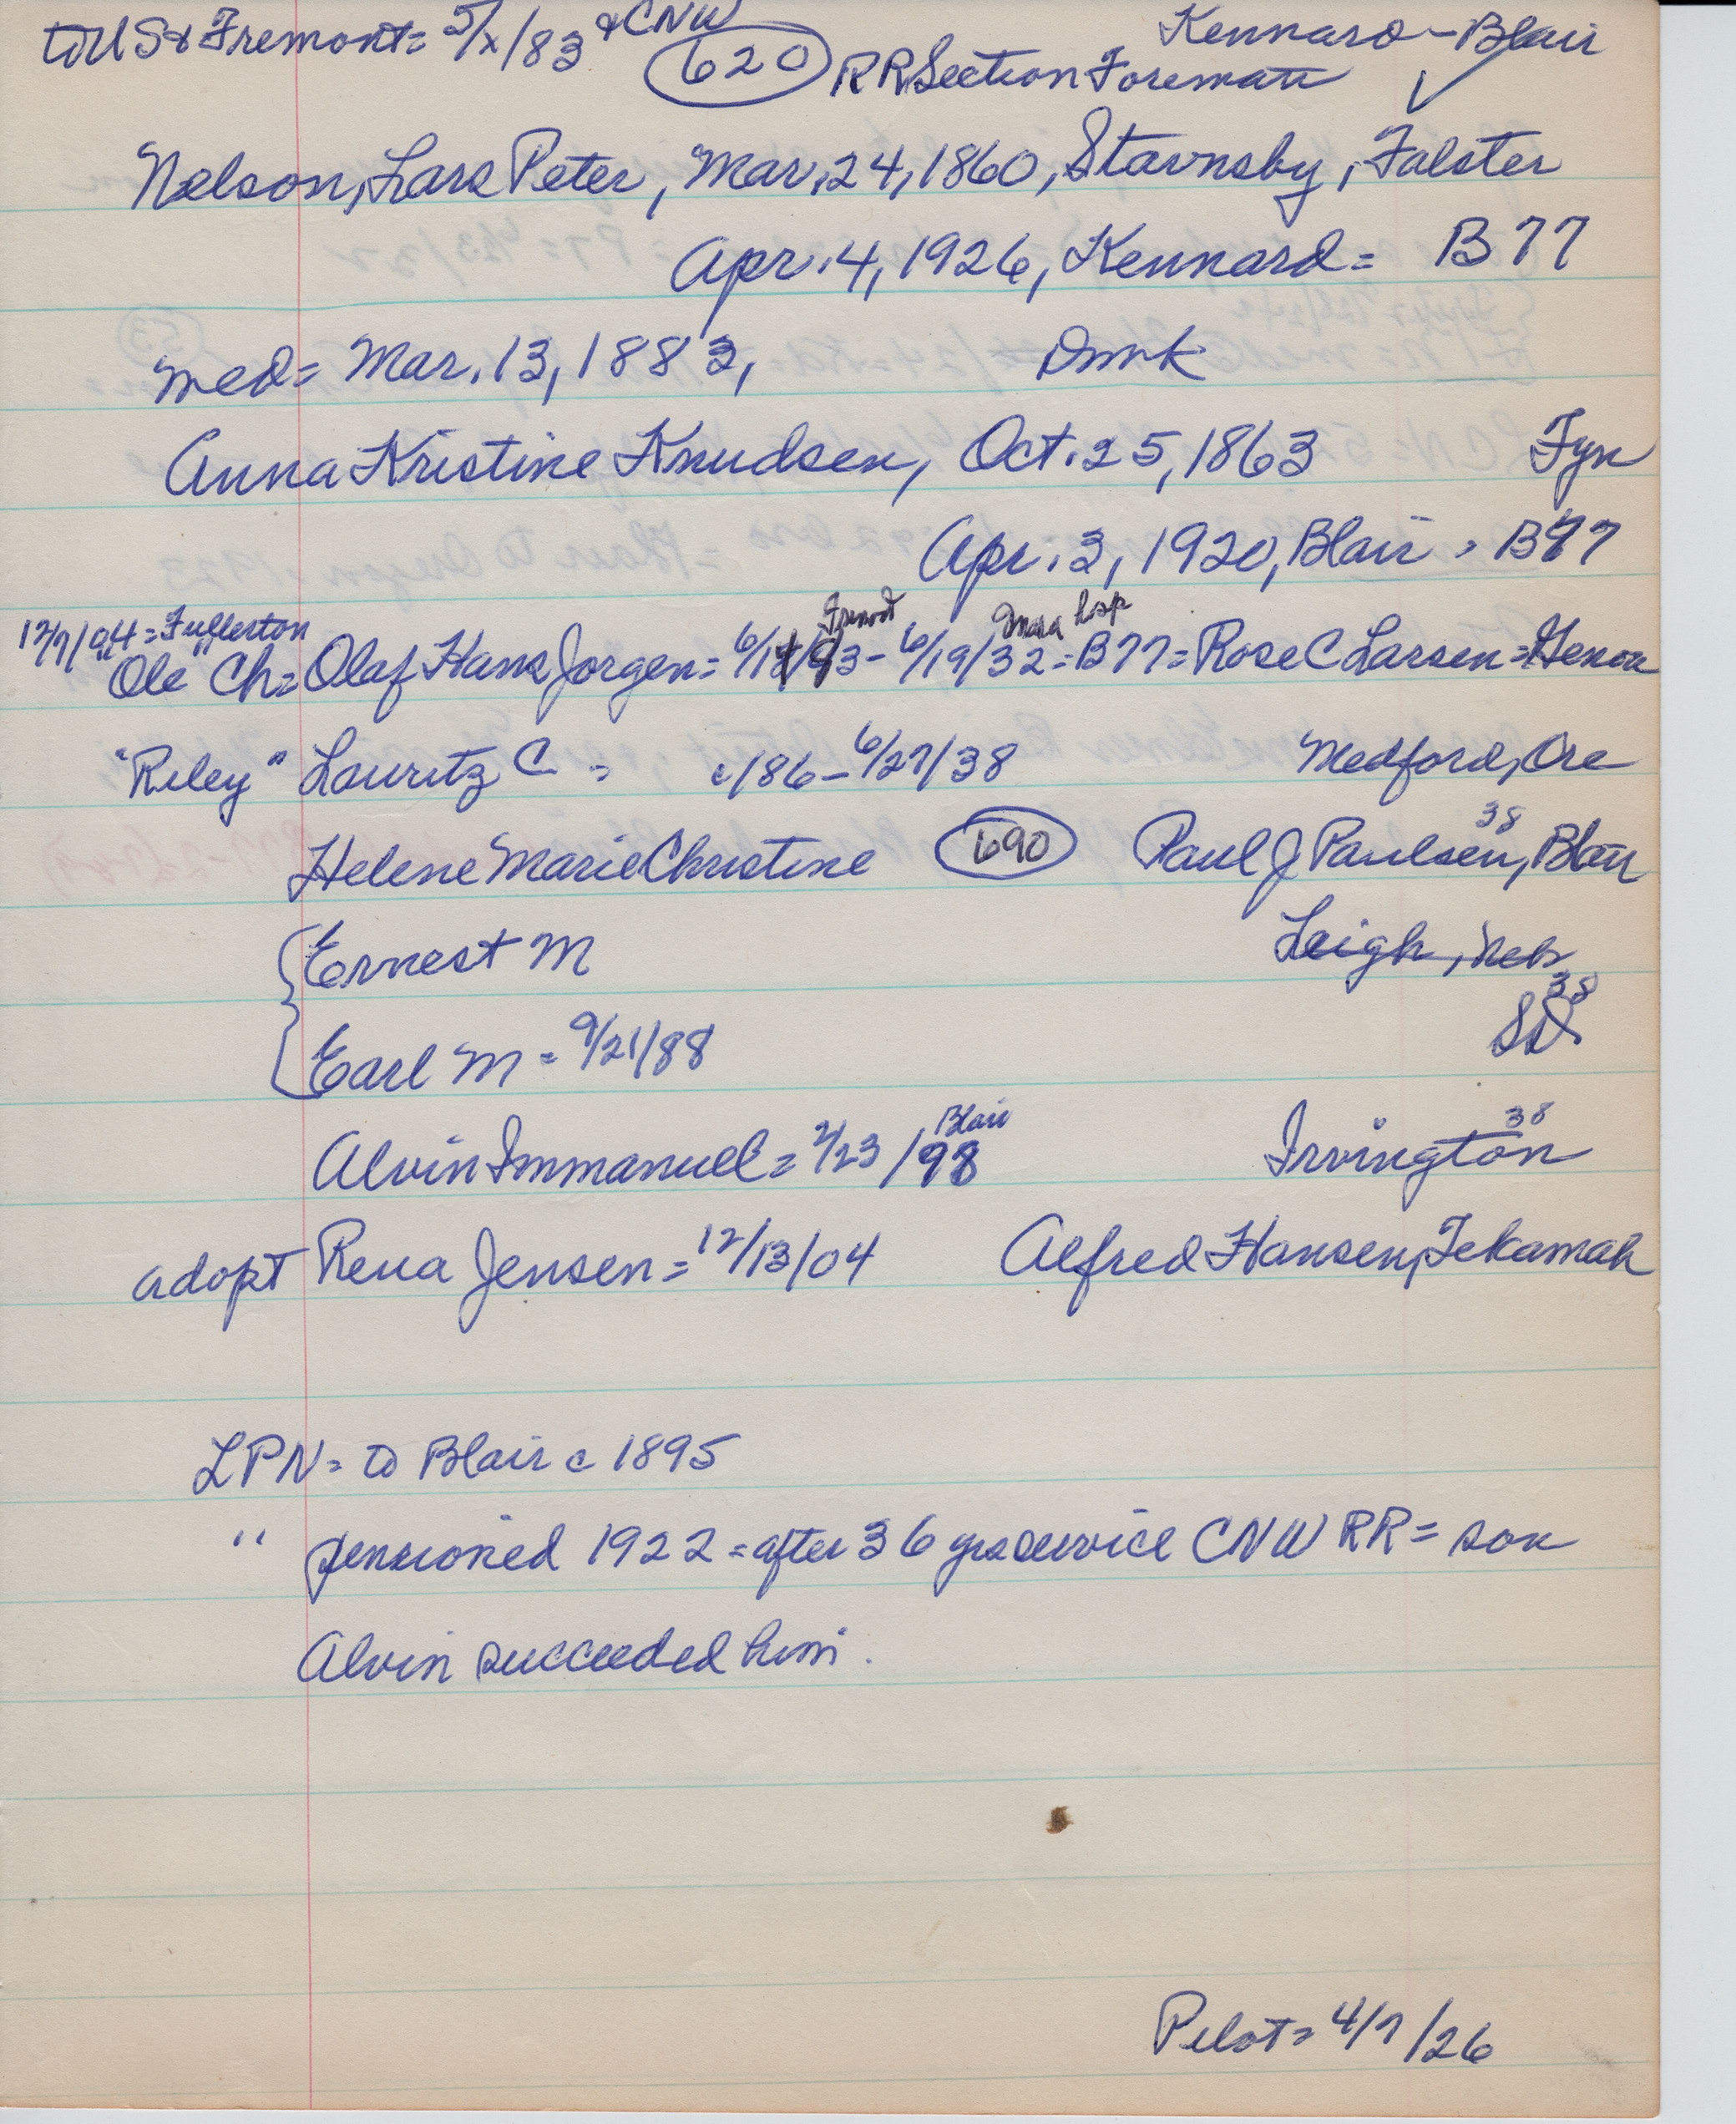 to US & Fremont = 5/x/83 & CNW Kennard - Blair
620 RR Section Foreman
Nelson, Lars Peter, Mar. 24, 1860, Stavnsby, Falster
Apr. 4, 1926, Kennard = B77
med = Mar. 13, 1883, Dmk
Anna Kristine Knudsen, Oct. 25, 1863 Fyn
Apr. 3, 1920, Blair, B77
12/7/04 = Fullerton Fremont Omaha hosp
"Ole" Ch = Olaf Hans Jorgen = - 6/19/32 = B77 = Rose C Larsen = Genoa
"Riley" Lauritz C = c/86 - 6/27/38 Medford, Ore
Helene Marie Christine 690 Paul J Paulsen, 38 Blair
Ernest M Leigh, Neb
Earl M = 9/21/88 SD 38
Alvin Immanuel = 2/23/98 Blair Irvington 38
adopt Rena Jensen = 12/13/04 Alfred Hansen, Tekamah
LPN = to Blair c 1895
" pensioned 1922 = after 36 yrs service CNW RR = son
Alvin succeeded him.
Pilot = 4/7/26